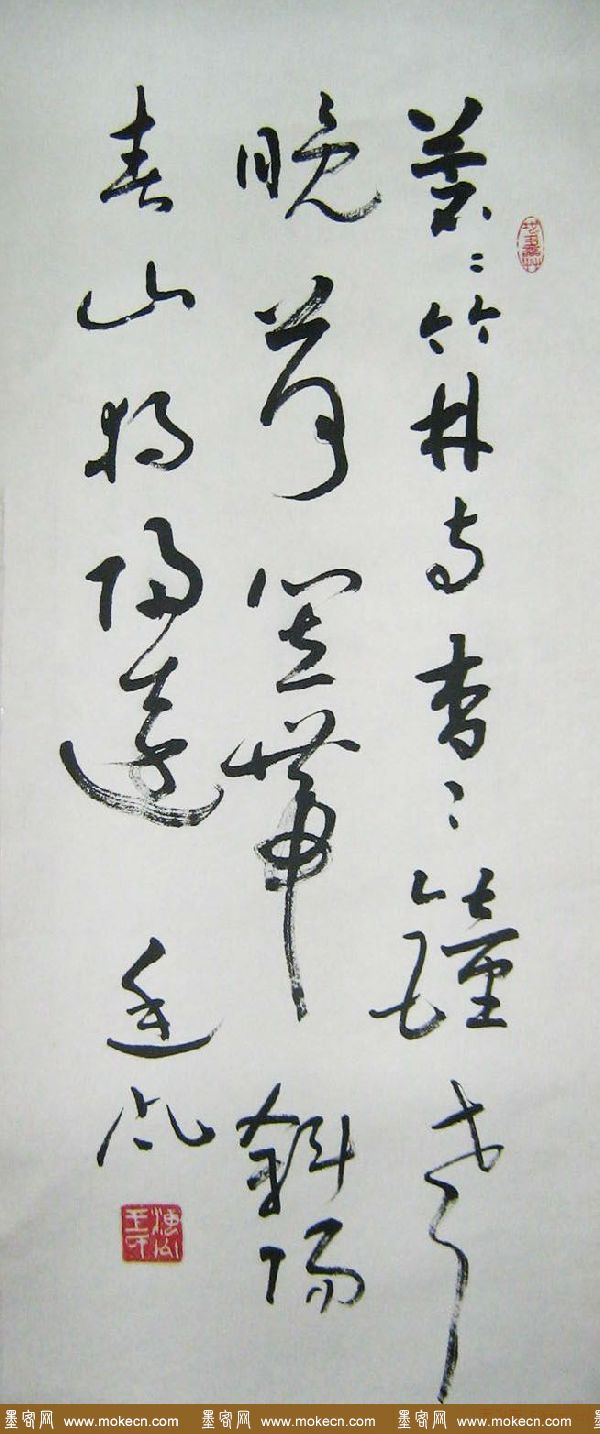 蒼〻竹林寺杳〻鐘声
晚荷笠帶斜陽
青山独归遠
墨客网 www.mokecn.com 墨客网 www.mokecn.com 墨客网 www.mokecn.com